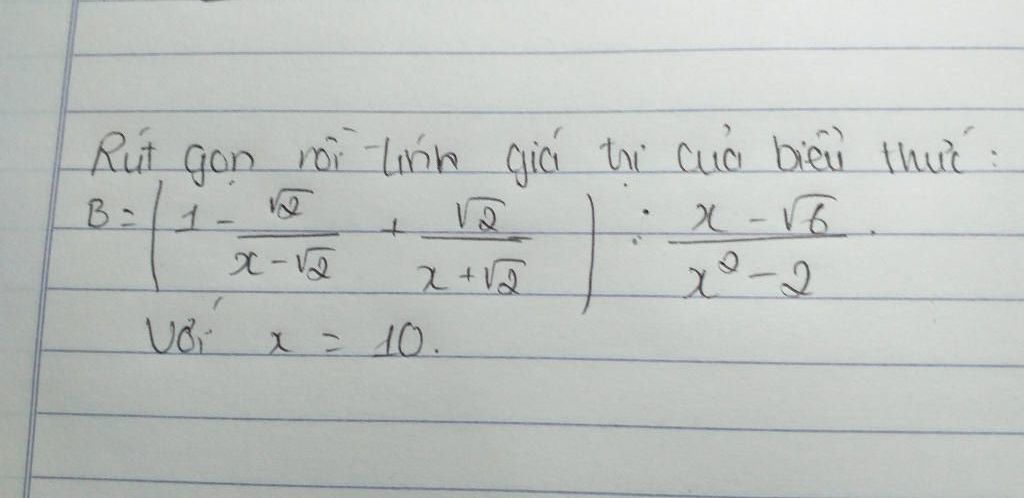 Rút gọn rồi tính giá trị của biểu thức:
B = (1 - √2/(x - √2) + √2/(x + √2)) : (x - √6)/(x² - 2).
Với x = 10.